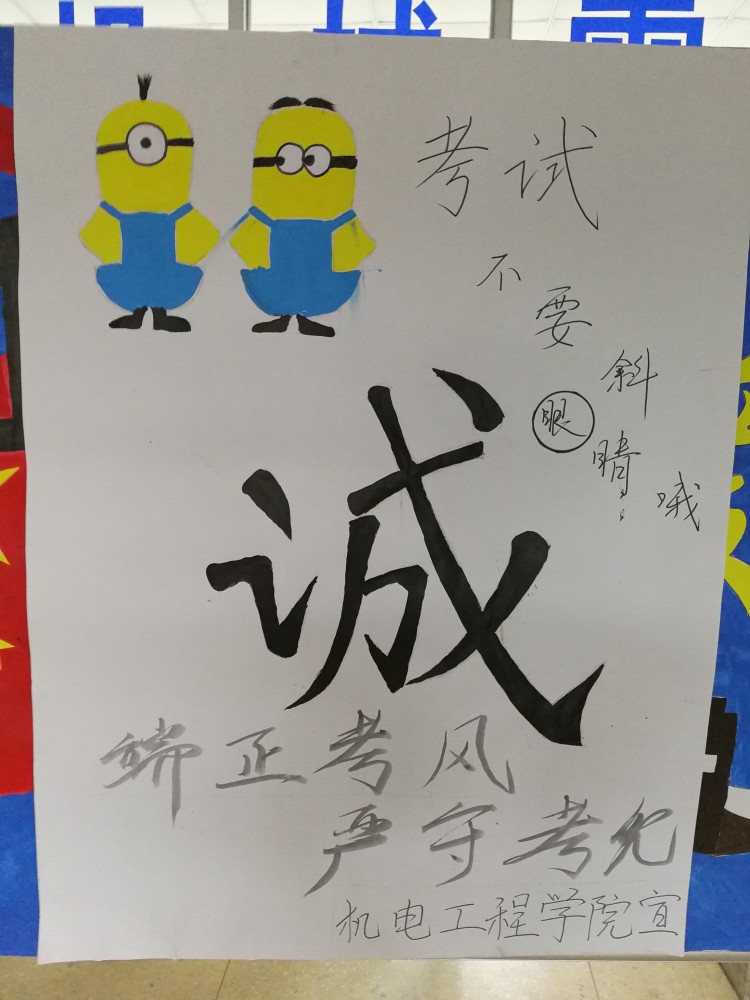 考试
不要斜眼睛哦
诚
端正考风
严守考纪
机电工程学院宣